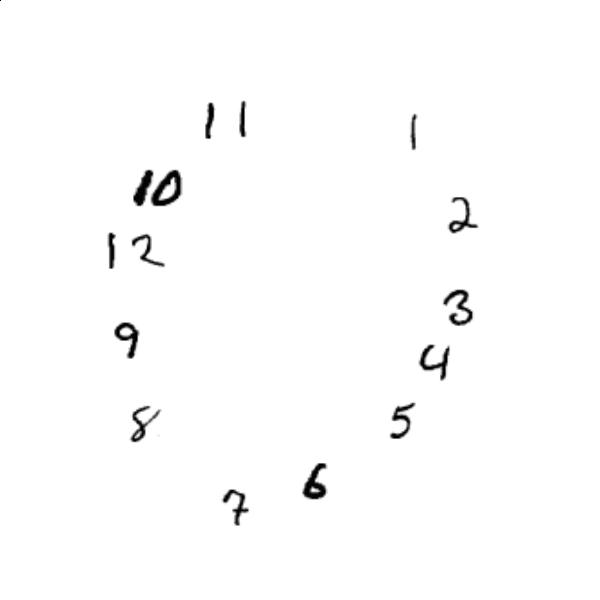 11 1
10
2
12
3
9
4
8
5
6
7